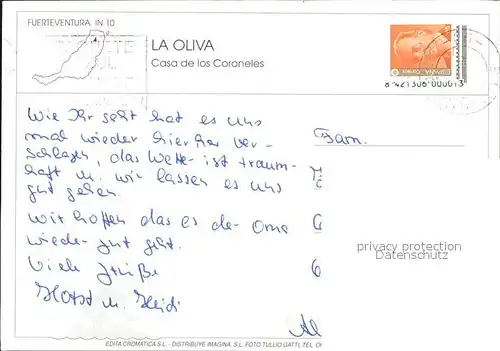 FUERTEVENTURA IN 10
LA OLIVA
Casa de los Coroneles
8 421306 000013
Wie Ihr seht hat es uns
mal wieder hierher ver-
schlagen, das Wetter ist traum-
haft u. wir lassen es uns
gut gehen.
Wir hoffen das es der Oma
wieder gut geht.
Viele Grüße
Horst u. Heidi
Fam.
privacy protection
Datenschutz
EDITA CROMATICA S.L. - DISTRIBUYE IMAGINA. S.L. FOTO TULLIO GATTI, TEL.